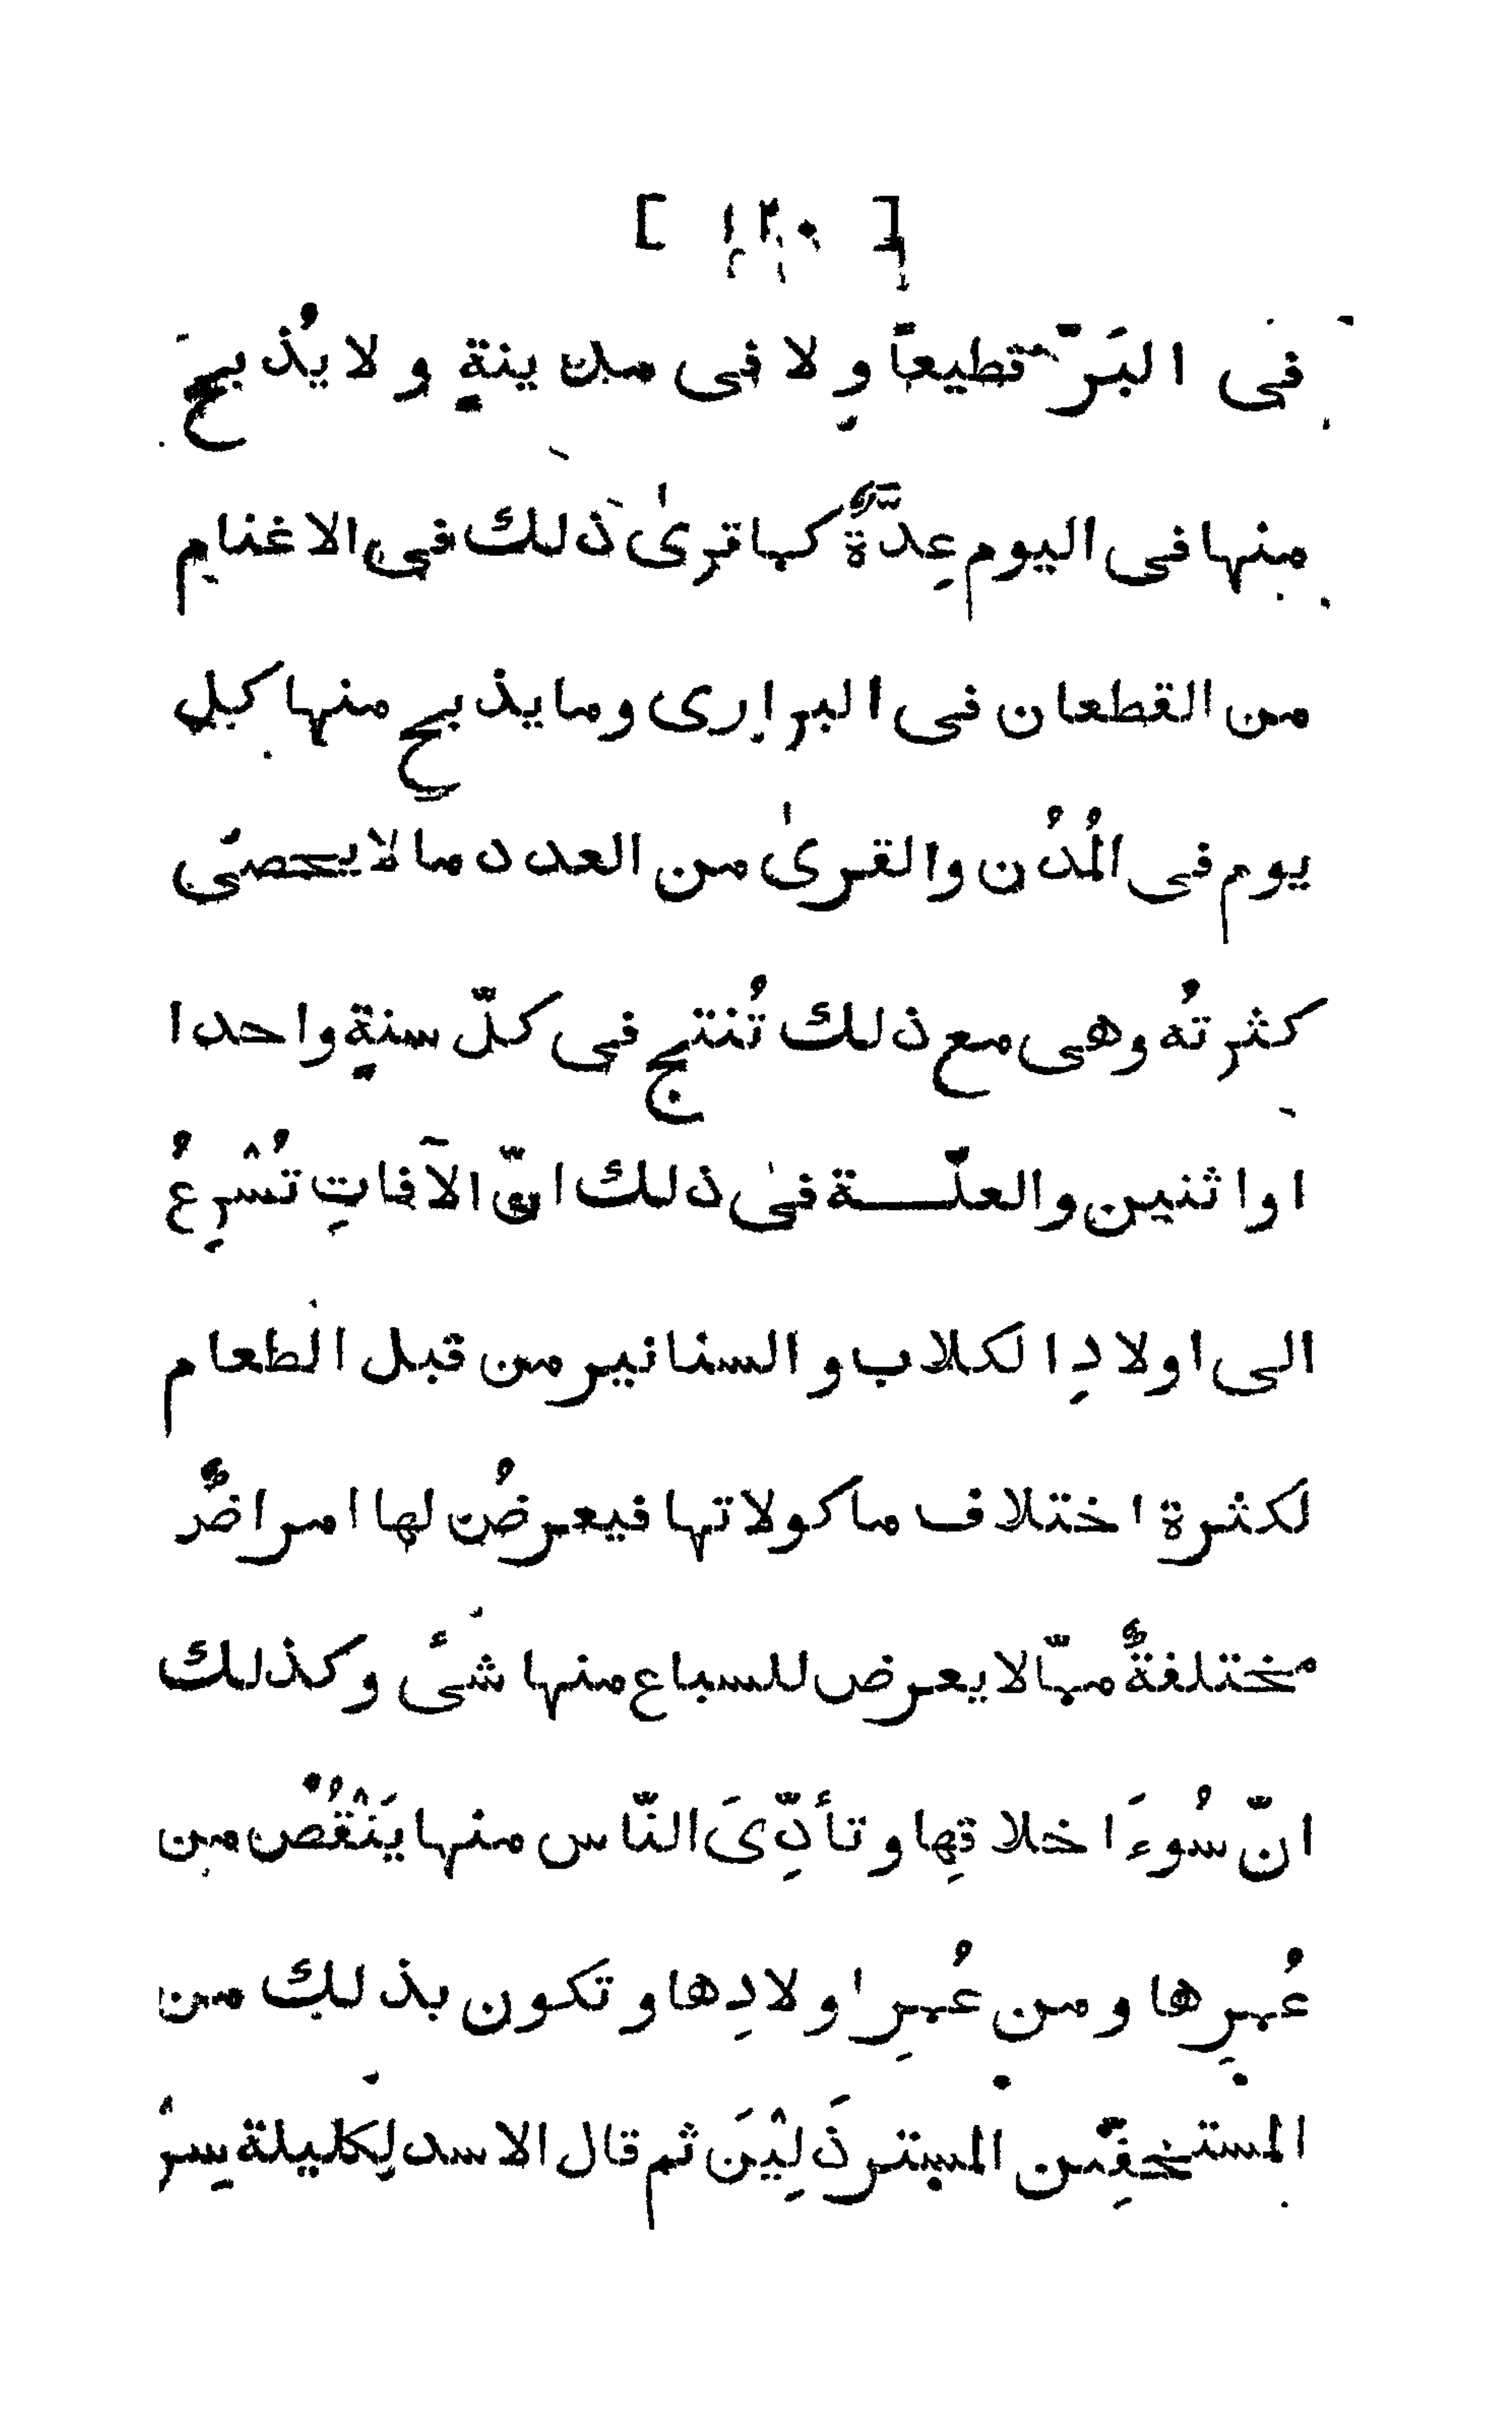 [ ١٢٠ ]
فى البَرّ قطيعاً ولا فى مدينةٍ ولا يُذبحَ
منها فى اليوم عِدّةٌ كما ترىٰ ذلك فى الاغنام
من القطعان فى البرارى وما يذبح منها كل
يوم فى المُدُن والقرىٰ من العدد ما لا يحصى
كثرتُه وهى مع ذلك تُنتج فى كلّ سنةٍ واحدا
او اثنين والعلّـــة فى ذلك انّ الآفاتِ تُسْرِعُ
الى اولادِ الكلاب والسنانير من قبل الطعام
لكثرة اختلاف ماكولاتها فيعرضُ لها امراضٌ
مختلفةٌ ممّا لا يعرض للسباع منها شئ وكذلك
انّ سُوءَ اخلاقِها وتأذِّىَ النّاس منها يَنْقُص من
عُمرِها ومن عُمرِ اولادِها وتكون بذلك من
المستخفِّين المسترذَلِيْنَ ثم قال الاسد لِكليلة سِرْ